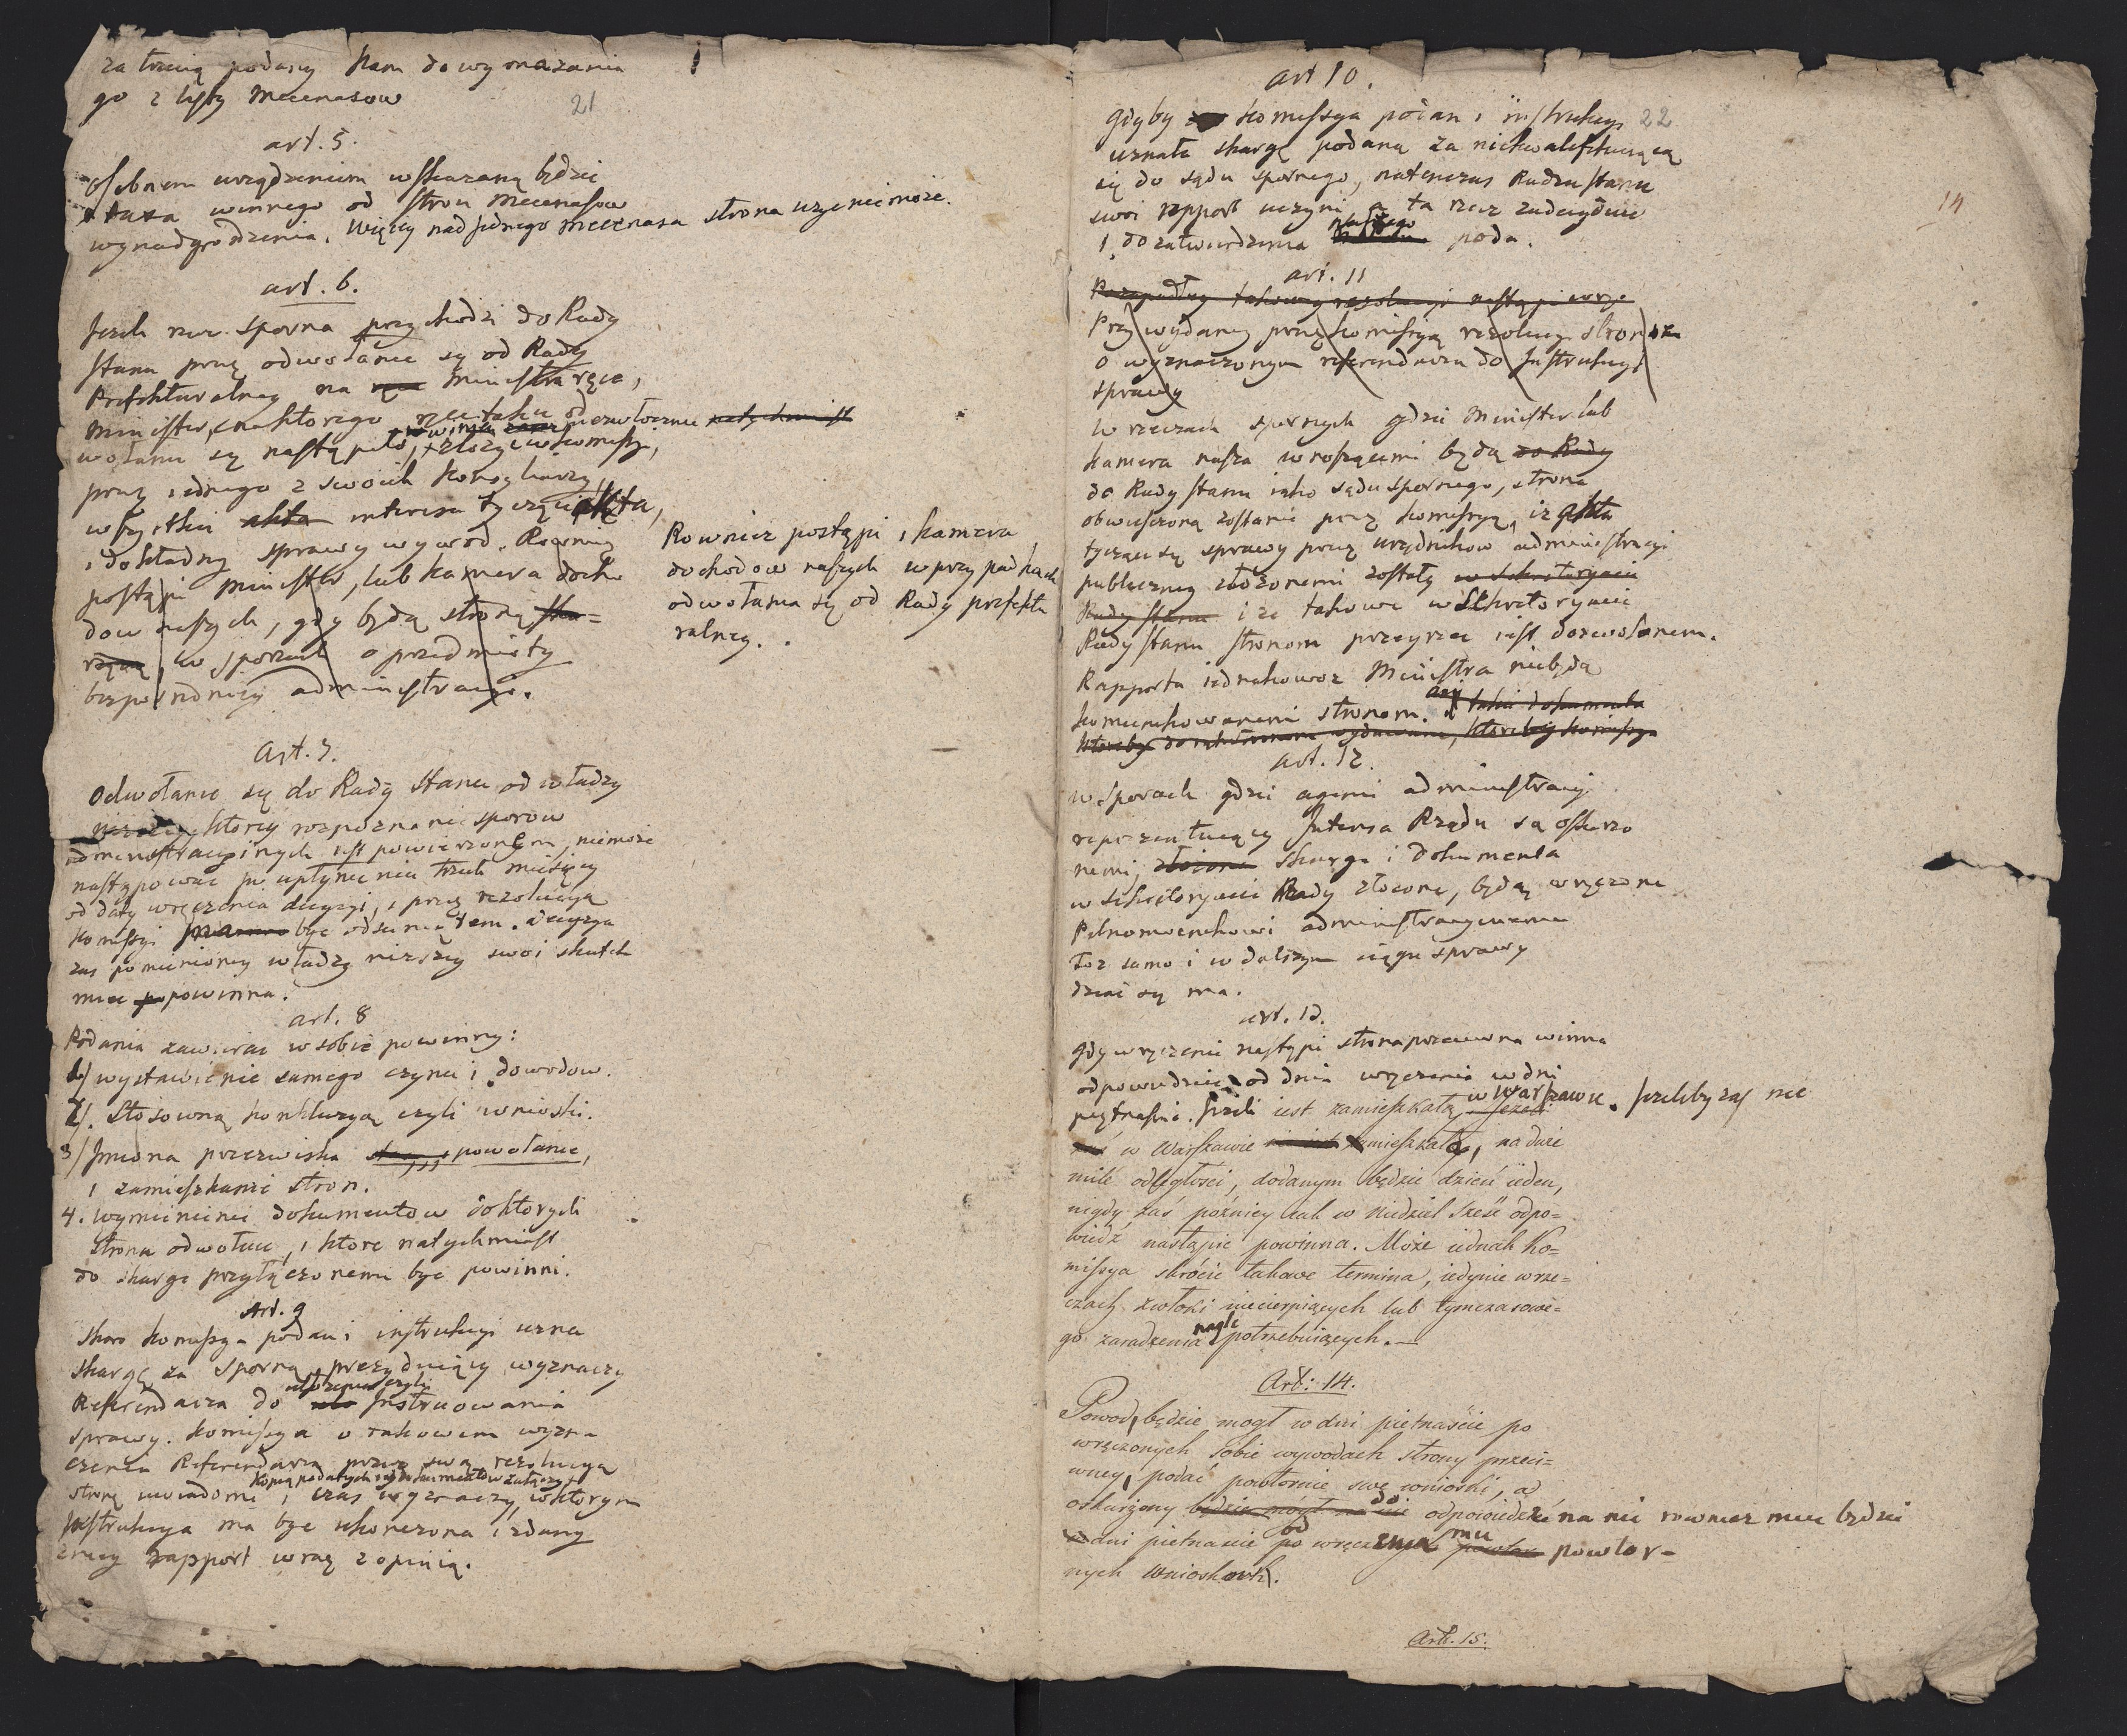 za trzecią podany Nam do wymazania
go z listy Mecenasow
21
art. 5.
osobnem urządzeniem wskazaną będzie
taxa winnego od stron Mecenasow
wynadgrodzenia. Więcy nad jednego Mecenasa strona użyć niemoże.
art. 6.
Jezeli rzecz sporna przychodzi do Rady
Stanu przez odwołanie się od Rady
Prefekturalney na ręce Ministra ręce,
Minister, na ktorego ręce takie od niezwłocznie natychmiast
wołanie się nastąpiło, powinien złożyć w Komissyi,
przez iednego z swoich Koreg
wszystkie akta interesu tyczące akta,
i dokładny sprawy wywod. Rownież
postąpi Minister, lub Kamera docho
dow naszych, gdy będą stroną ska=
rżącą, w sporach o przedmioty
bezposredniey administracyi.
Rownież postąpi i kamera
dochodow naszych w przypadkach
odwołania się od Rady prefektu
ralney.
Art. 7.
Odwołanie się do Rady Stanu od władzy
niższey ktorey rozpoznanie sporow
administracyinych iest powierzonem, niemoże
następować po upłynieniu trzech miesięcy
od daty wręczenia decyzyi, i przez rezolucyą
Komissyi być odsuniętem. Decyzya
zas pomienioney władzy nizszey swoi skutek
miec powinna.
art. 8
Podania zawierac w sobie powinny:
1) wystawienie samego czynu i dowodow.
2). Stosowną konkluzyą czyli wnioski.
3) Imiona przezwiska powołanie,
i zamieszkanie stron.
4. Wymienienie dokumentow do ktorych
strona odwołuie, i ktore natychmiast
do skargi przyłączonemi byc powinni.
Art. 9
Skoro Komissya podan i instrukcyi uzna
skargę za sporną, prezyduiący wyznaczy
Referendarza do ułożenia czyli Instruowania
sprawy. Komissya o takowem wyzna
czeniu Referendarza przez swą rezolucyą
Kopią podanych dokumentow załączy
stronę uwiadomi, i czas wyznaczy, w ktorym
Instrukcya ma byc ukonczona i zdany
z niey rapport wraz z opinią.
art 10.
gdyby Komissya podan i instrukcyi 22
uznała skargę podaną za niekwalifikuiącą
się do sądu spornego, natenczas Radzie Stanu
swoi rapport uczyni, a ta rzecz zadecyduie
i do zatwierdzenia naszego poda.
14
art. 11
Rozpadłey takowey rezolucyi nastąpi
Przy wydaney przez Komissyą rezolucyi stron
o wyznaczonym referendarzu do Instrukcyi
sprawy
W rzeczach spornych gdzie Minister lub
Kamera nasza wnoszącemi będą do Rady
do Rady Stanu iako sądu spornego, strona
obwieszczoną zostanie przez Komissyą, iż akta
tyczące się sprawy przez urzędnikow administracyi
publiczney złożonemi zostały w Sekretaryacie
Rady Stanu i że takowe w Sekretaryacie
Rady Stanu stronom przeyrzec iest dozwolonem.
Rapporta iednakowoz Ministra niebędą
komunikowanemi stronom. ani takie dokumenta
ktoreby Komissya
art. 12.
w Sporach gdzie agenci administracyi
reprezentuiący Interesa Rządu są oskarzo
nemi, złożone skarga i dokumenta
w Sekretaryacie Rady złożone, będą wręczone
Pełnomocnikowi administracyinemu
Toż samo i w dalszym ciągu sprawy
dziać się ma.
art. 13.
gdy wręczenie nastąpi strona przeciwna winna
odpowiedziec od dnia wręczenia w dni
piętnaście. Jeżeli iest zamieszkałą w Warszawie. Jeżeliby zaś nie
w Warszawie zamieszkałą, na dwie
mile odległosci, dodanym będzie dzień ieden,
nigdy zaś poźniey iak w niedziel sześć odpo=
wiedź nastąpić powinna. Może iednak Ko=
missya skrócić takowe termina, iedynie w rze=
czach zwłoki niecierpiących lub tymczasowe=
go zaradzenia nagle potrzebuiących.
Art: 14.
Powod, będzie mogł w dni pietnaście po
wręczonych sobie wywodach strony przeci=
wney, podać powtornie swe wnioski, a
oskarżony będzie mógł na nie do odpowiedzi na nie rownież miec będzie
dni pietnaście od wręczenia mu powtor=
nych Wnioskow.
Art. 15.